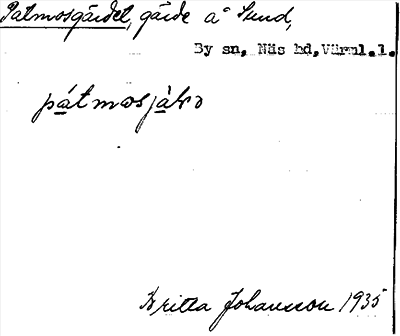 Patmosgärdet, gärde å Sund,
By sn, Näs hd, Värml.l.
pátmosjàlə
Britta Johansson 1935